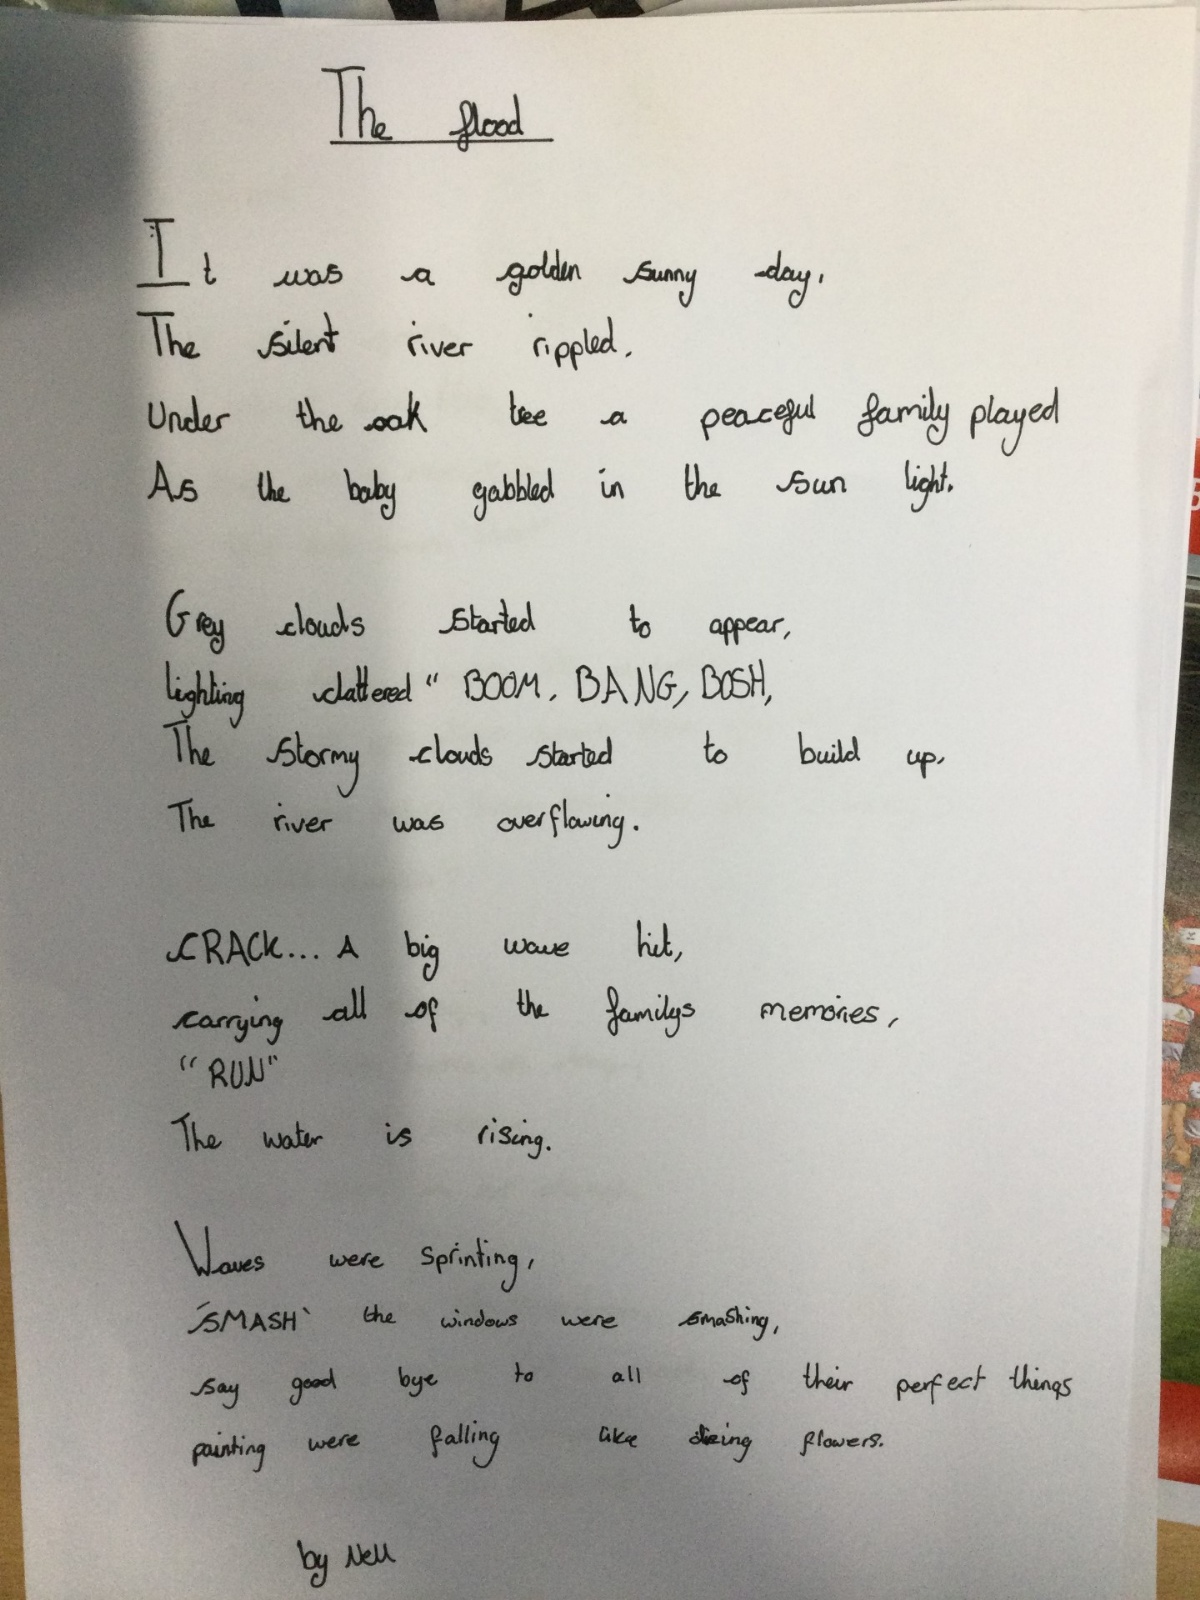 The flood
It was a golden sunny day,
The silent river rippled.
Under the oak tree a peaceful family played
As the baby gabbled in the sun light.
Grey clouds started to appear,
lighting clattered " BOOM, BANG, BOSH,
The stormy clouds started to build up,
The river was overflowing.
CRACK... A big wave hit,
carrying all of the familys memories,
"RUN"
The water is rising.
Waves were sprinting,
'SMASH' the windows were smashing,
say good bye to all of their perfect things
painting were falling like dieing flowers.
by Nell